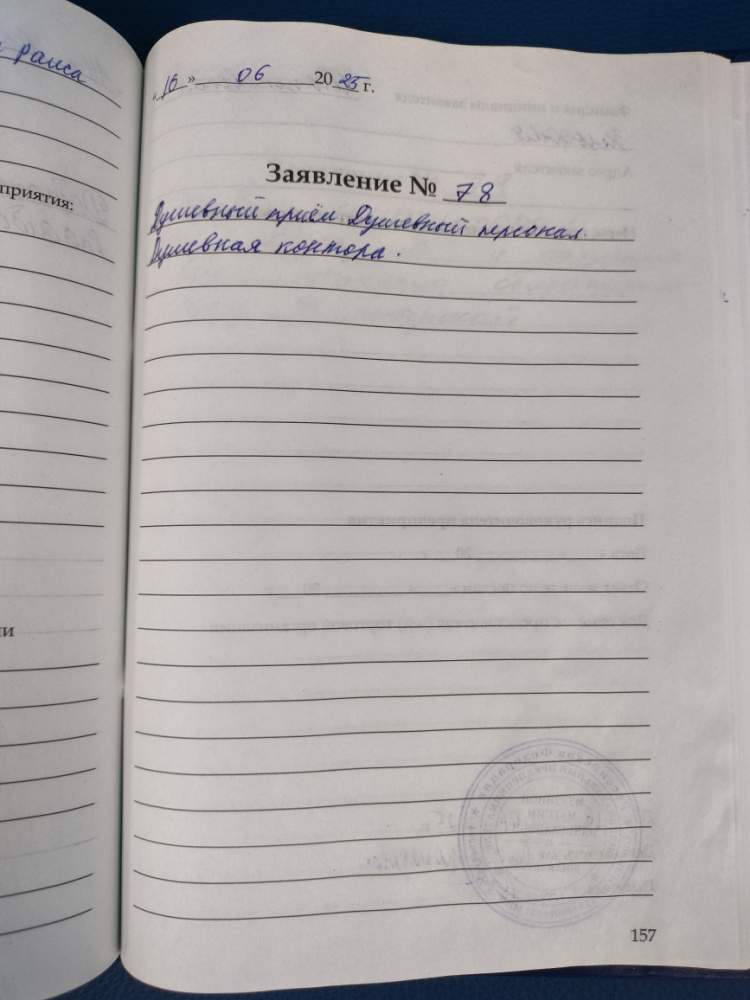 раиса
«16» 06 2025 г.
приятия:
Заявление № 78
Душевный приём Душевный персонал.
Душевная контора.
ии
157